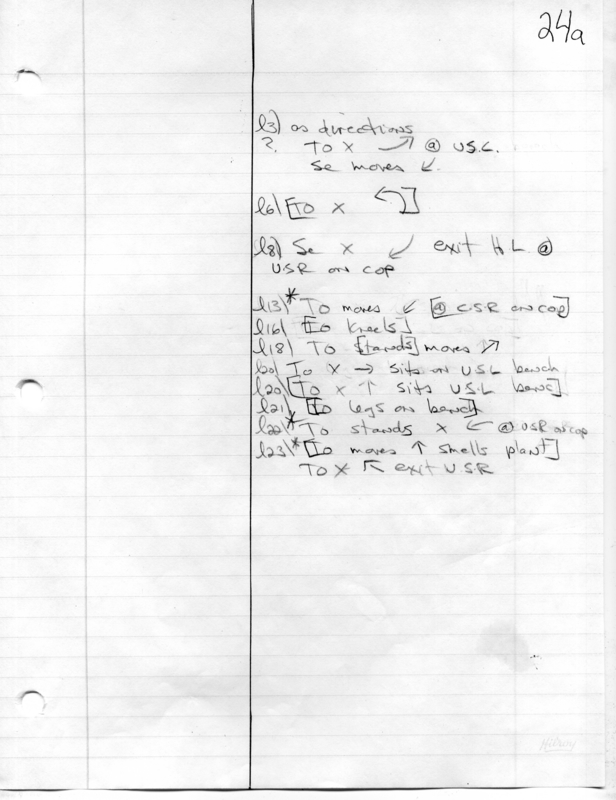 24a
l3) as directions
? To X ↗ @ U.S.L.
Se moves ↙.
l6) [To X ↰]
l8) Se X ↙ exit H L @
U.S.R on cop
l13) * To moves ↙ [@ C.S.R on cop]
l16) [To kneels]
l18) To [stands] moves ↗
l20) To X → sits on U.S.L bench
l20) [To X ↑ sits U.S.L benc]
l21) [To legs on bench]
l22) * To stands X ← @ USR on cop
l23) * [To moves ↑ smells plant]
To X ↖ exit U.S.R
Hilroy